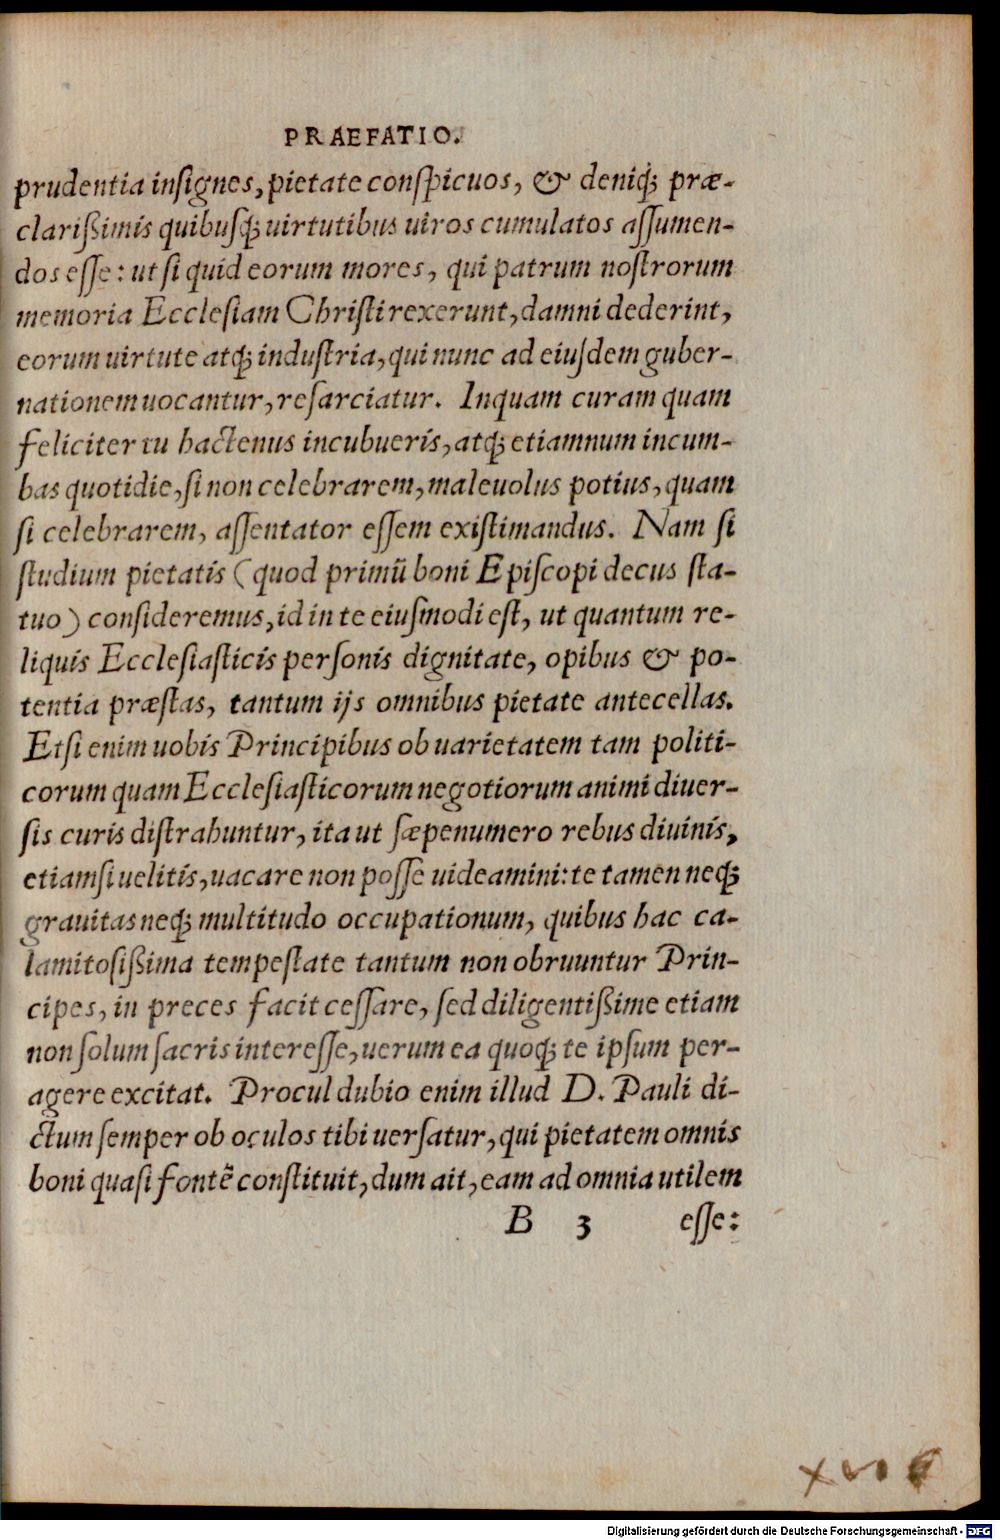 PRAEFATIO.
prudentia insignes, pietate conspicuos, & deniq; præ-
clarißimis quibusq; uirtutibus uiros cumulatos assumen-
dos esse: ut si quid eorum mores, qui patrum nostrorum
memoria Ecclesiam Christi rexerunt, damni dederint,
eorum uirtute atq; industria, qui nunc ad eiusdem guber-
nationem uocantur, resarciatur. Inquam curam quam
feliciter tu hactenus incubueris, atq; etiamnum incum-
bas quotidie, si non celebrarem, maleuolus potius, quam
si celebrarem, assentator essem existimandus. Nam si
studium pietatis (quod primũ boni Episcopi decus sta-
tuo) consideremus, id in te eiusmodi est, ut quantum re-
liquis Ecclesiasticis personis dignitate, opibus & po-
tentia præstas, tantum ijs omnibus pietate antecellas.
Etsi enim uobis Principibus ob uarietatem tam politi-
corum quam Ecclesiasticorum negotiorum animi diuer-
sis curis distrahuntur, ita ut sæpenumero rebus diuinis,
etiamsi uelitis, uacare non posse uideamini: te tamen neq;
grauitas neq; multitudo occupationum, quibus hac ca-
lamitosißima tempestate tantum non obruuntur Prin-
cipes, in preces facit cessare, sed diligentißime etiam
non solum sacris interesse, uerum ea quoq; te ipsum per-
agere excitat. Procul dubio enim illud D. Pauli di-
ctum semper ob oculos tibi uersatur, qui pietatem omnis
boni quasi fontẽ constituit, dum ait, eam ad omnia utilem
B 3 esse:
Digitalisierung gefördert durch die Deutsche Forschungsgemeinschaft - DFG